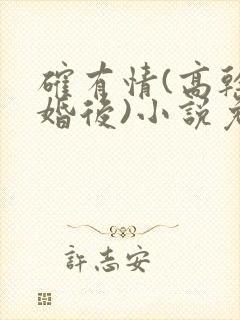 確有情(高幹
婚後)小說
許志安